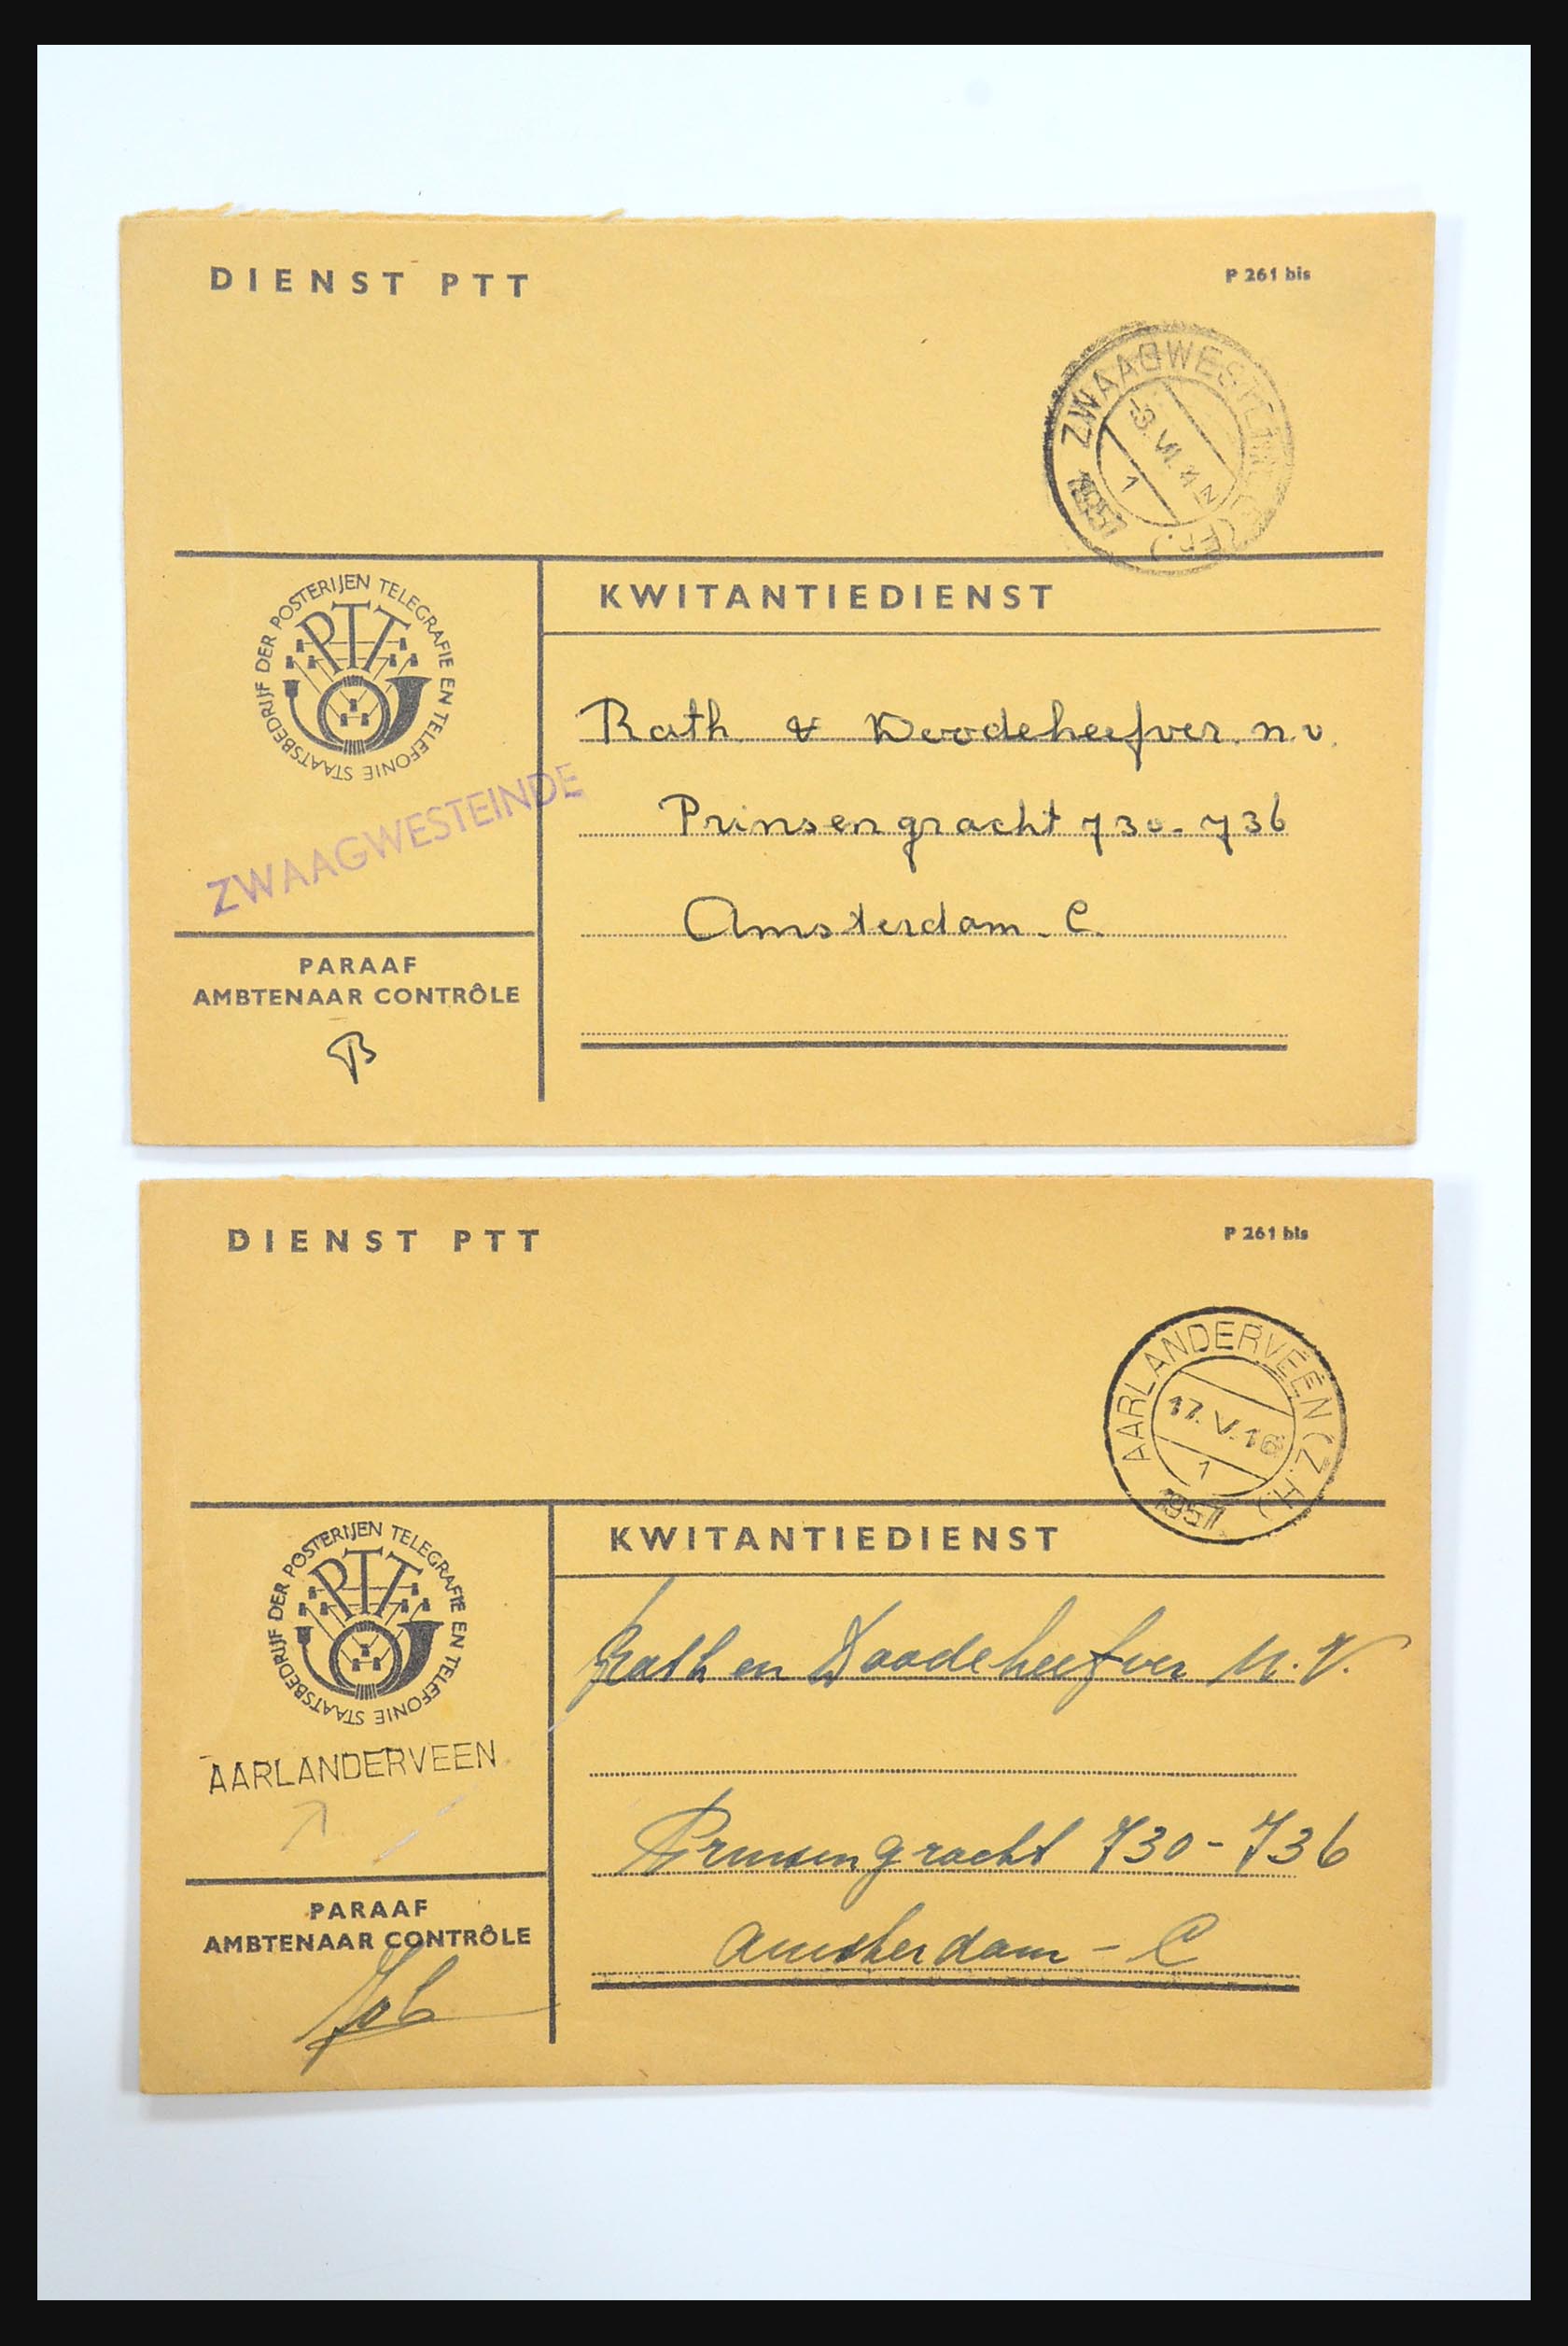 DIENST PTT
P 261 bis
ZWAAGWESTEINDE (Fr.)
1
STAATSBEDRIJF DER POSTERIJEN TELEGRAFIE EN TELEFONIE
PTT
KWITANTIEDIENST
Rath & Doodeheefver. n.v.
Prinsengracht 730-736
Amsterdam. C.
ZWAAGWESTEINDE
PARAAF
AMBTENAAR CONTRÔLE
DIENST PTT
P 261 bis
AARLANDERVEEN (Z.H.)
17.V.16
1
1957
STAATSBEDRIJF DER POSTERIJEN TELEGRAFIE EN TELEFONIE
PTT
KWITANTIEDIENST
Rath en Doodeheefver N.V.
Prinsengracht 730-736
Amsterdam - C
AARLANDERVEEN
PARAAF
AMBTENAAR CONTRÔLE